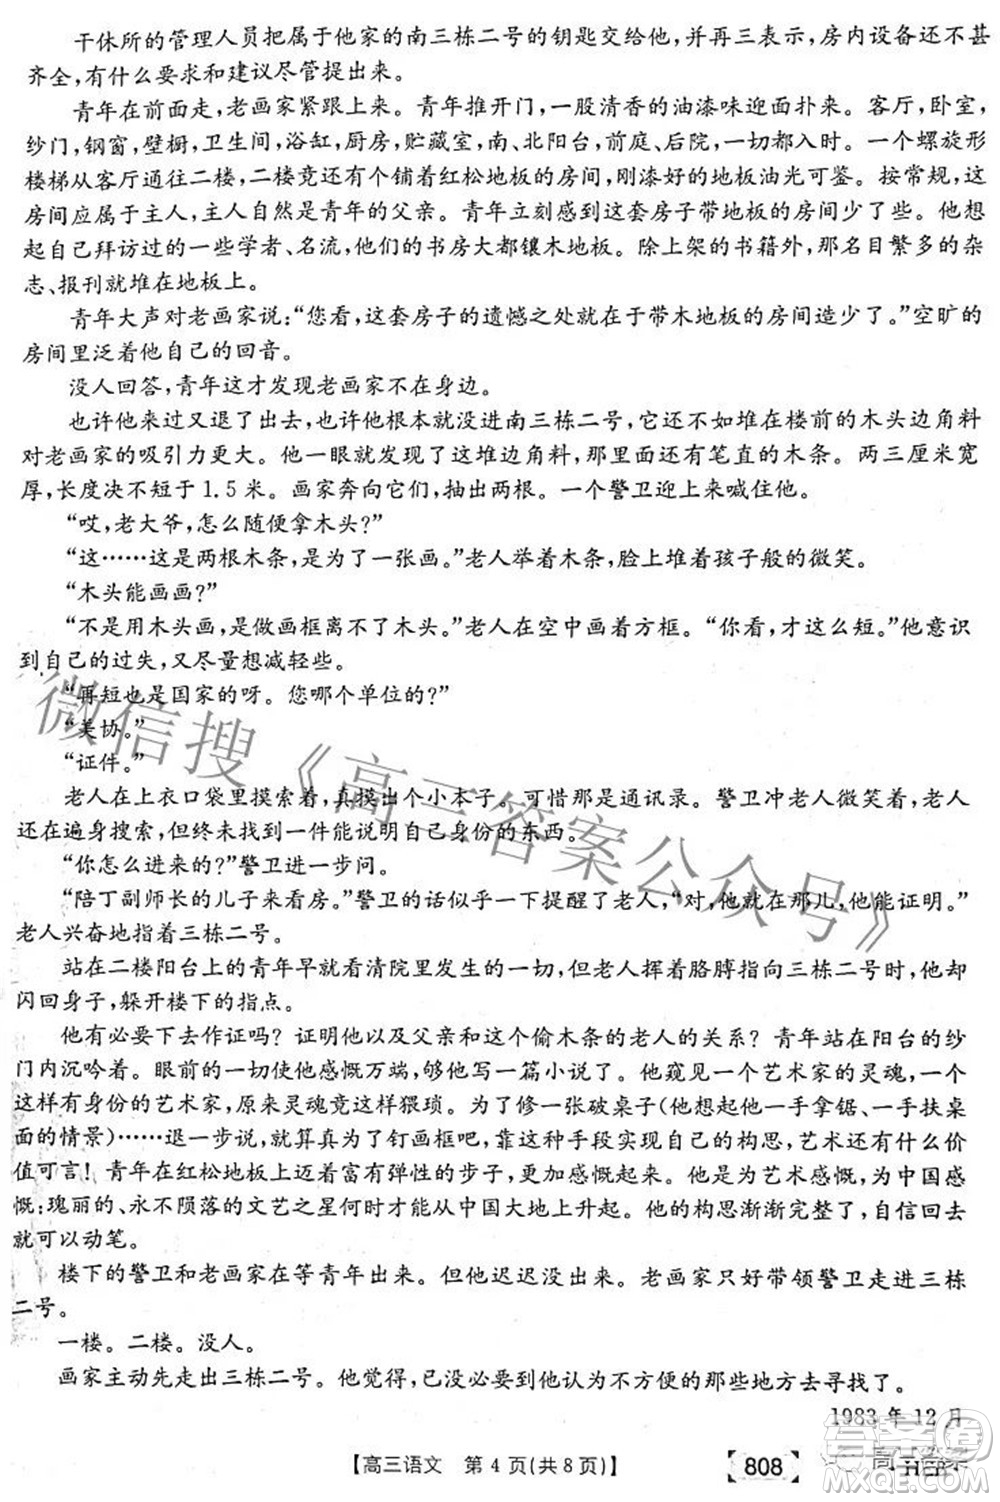 干休所的管理人员把属于他家的南三栋二号的钥匙交给他,并再三表示,房内设备还不甚
齐全,有什么要求和建议尽管提出来。
青年在前面走,老画家紧跟上来。青年推开门,一股清香的油漆味迎面扑来。客厅,卧室,
纱门,钢窗,壁橱,卫生间,浴缸,厨房,贮藏室,南、北阳台,前庭、后院,一切都入时。一个螺旋形
楼梯从客厅通往二楼,二楼竟还有个铺着红松地板的房间,刚漆好的地板油光可鉴。按常规,这
房间应属于主人,主人自然是青年的父亲。青年立刻感到这套房子带地板的房间少了些。他想
起自己拜访过的一些学者、名流,他们的书房大都镶木地板。除上架的书籍外,那名目繁多的杂
志、报刊就堆在地板上。
青年大声对老画家说:“您看,这套房子的遗憾之处就在于带木地板的房间造少了。”空旷的
房间里泛着他自己的回音。
没人回答,青年这才发现老画家不在身边。
也许他来过又退了出去,也许他根本就没进南三栋二号,它还不如堆在楼前的木头边角料
对老画家的吸引力更大。他一眼就发现了这堆边角料,那里面还有笔直的木条。两三厘米宽
厚,长度决不短于1.5米。画家奔向它们,抽出两根。一个警卫迎上来喊住他。
“哎,老大爷,怎么随便拿木头?”
“这……这是两根木条,是为了一张画。”老人举着木条,脸上堆着孩子般的微笑。
“木头能画画?”
“不是用木头画,是做画框离不了木头。”老人在空中画着方框。“你看,才这么短。”他意识
到自己的过失,又尽量想减轻些。
“再短也是国家的呀。您哪个单位的?”
“美协。”
“证件。”
老人在上衣口袋里摸索着,真摸出个小本子。可惜那是通讯录。警卫冲老人微笑着,老人
还在遍身搜索,但终未找到一件能说明自己身份的东西。
“你怎么进来的?”警卫进一步问。
“陪丁副师长的儿子来看房。”警卫的话似乎一下提醒了老人,“对,他就在那儿,他能证明。”
老人兴奋地指着三栋二号。
站在二楼阳台上的青年早就看清院里发生的一切,但老人挥着胳膊指向三栋二号时,他却
闪回身子,躲开楼下的指点。
他有必要下去作证吗?证明他以及父亲和这个偷木条的老人的关系?青年站在阳台的纱
门内沉吟着。眼前的一切使他感慨万端,他够他写一篇小说了。他窥见一个艺术家的灵魂,一个
这样有身份的艺术家,原来灵魂竟这样猥琐。为了修一张破桌子(他想起他一手拿锯、一手扶桌
面的情景)……退一步说,就算真为了钉画框吧,靠这种手段实现自己的构思,艺术还有什么价
值可言!青年在红松地板上迈着富有弹性的步子,更加感慨起来。他是为艺术感慨,为中国感
慨:瑰丽的、永不陨落的文艺之星何时才能从中国大地上升起。他的构思渐渐完整了,自信回去
就可以动笔。
楼下的警卫和老画家在等青年出来。但他迟迟没出来。老画家只好带领警卫走进三栋
二号。
一楼。二楼。没人。
画家主动先走出三栋二号。他觉得,已没必要到他认为不方便的那些地方去寻找了。
1983年12月
【高三语文 第4页(共8页)】 808
微信搜《高三答案公众号》
答案圈
MXQE.COM